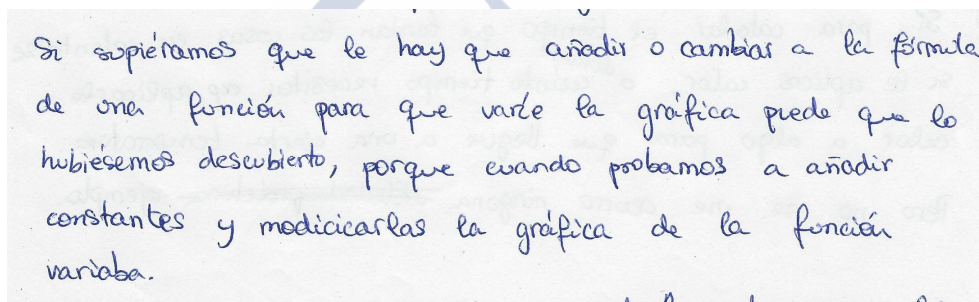 Si supiéramos que le hay que añadir o cambiar a la fórmula
de una función para que varíe la gráfica puede que lo
hubiésemos descubierto, porque cuando probamos a añadir
constantes y modicicarlas la gráfica de la función
variaba.